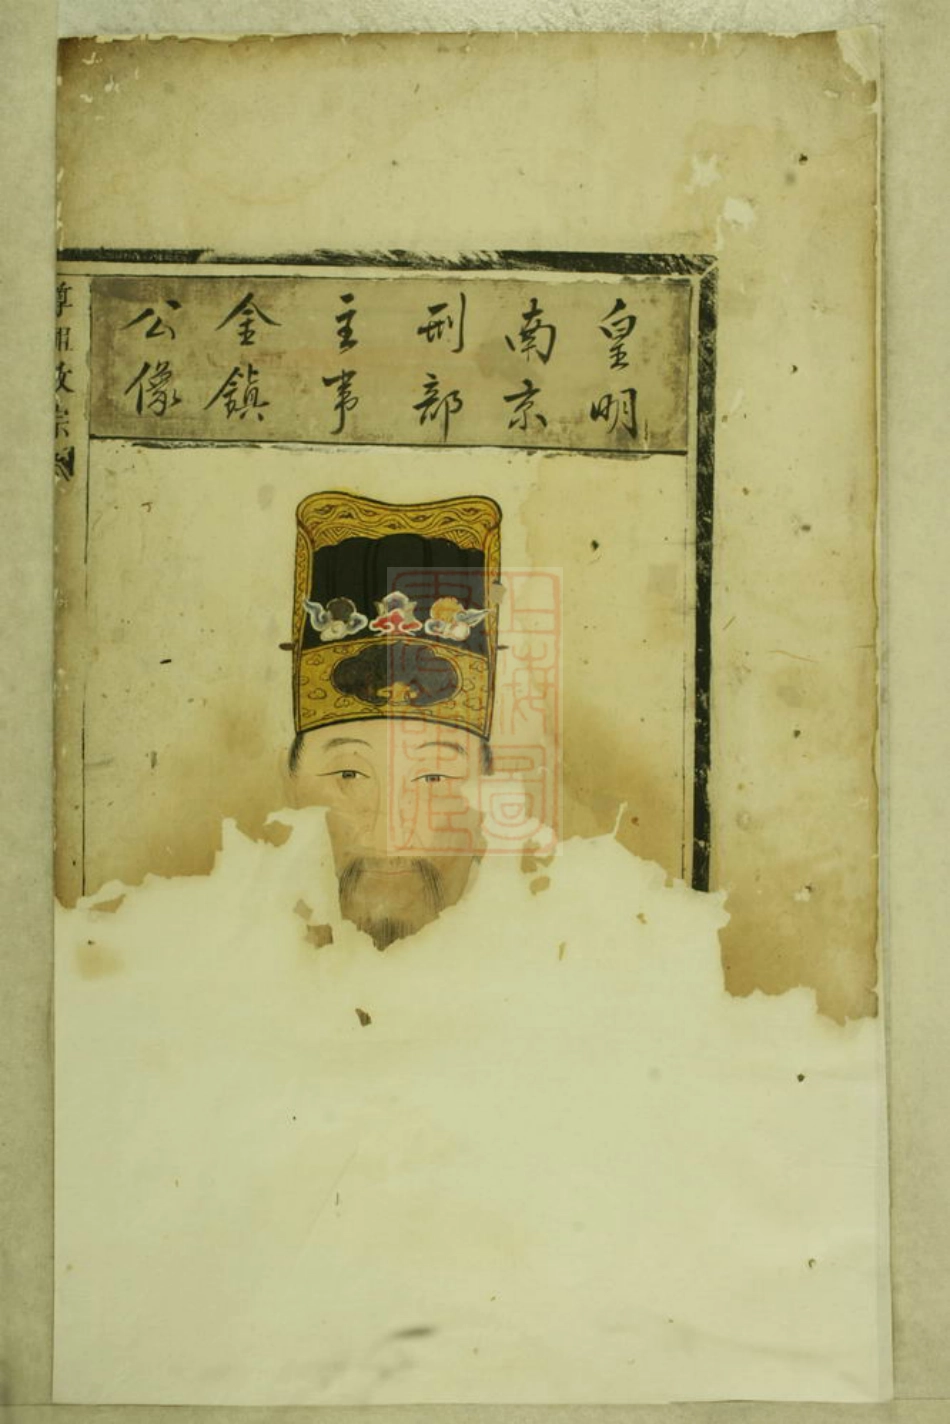 皇明
南京
刑部
主事
金鎮
公像
尊祖敬宗